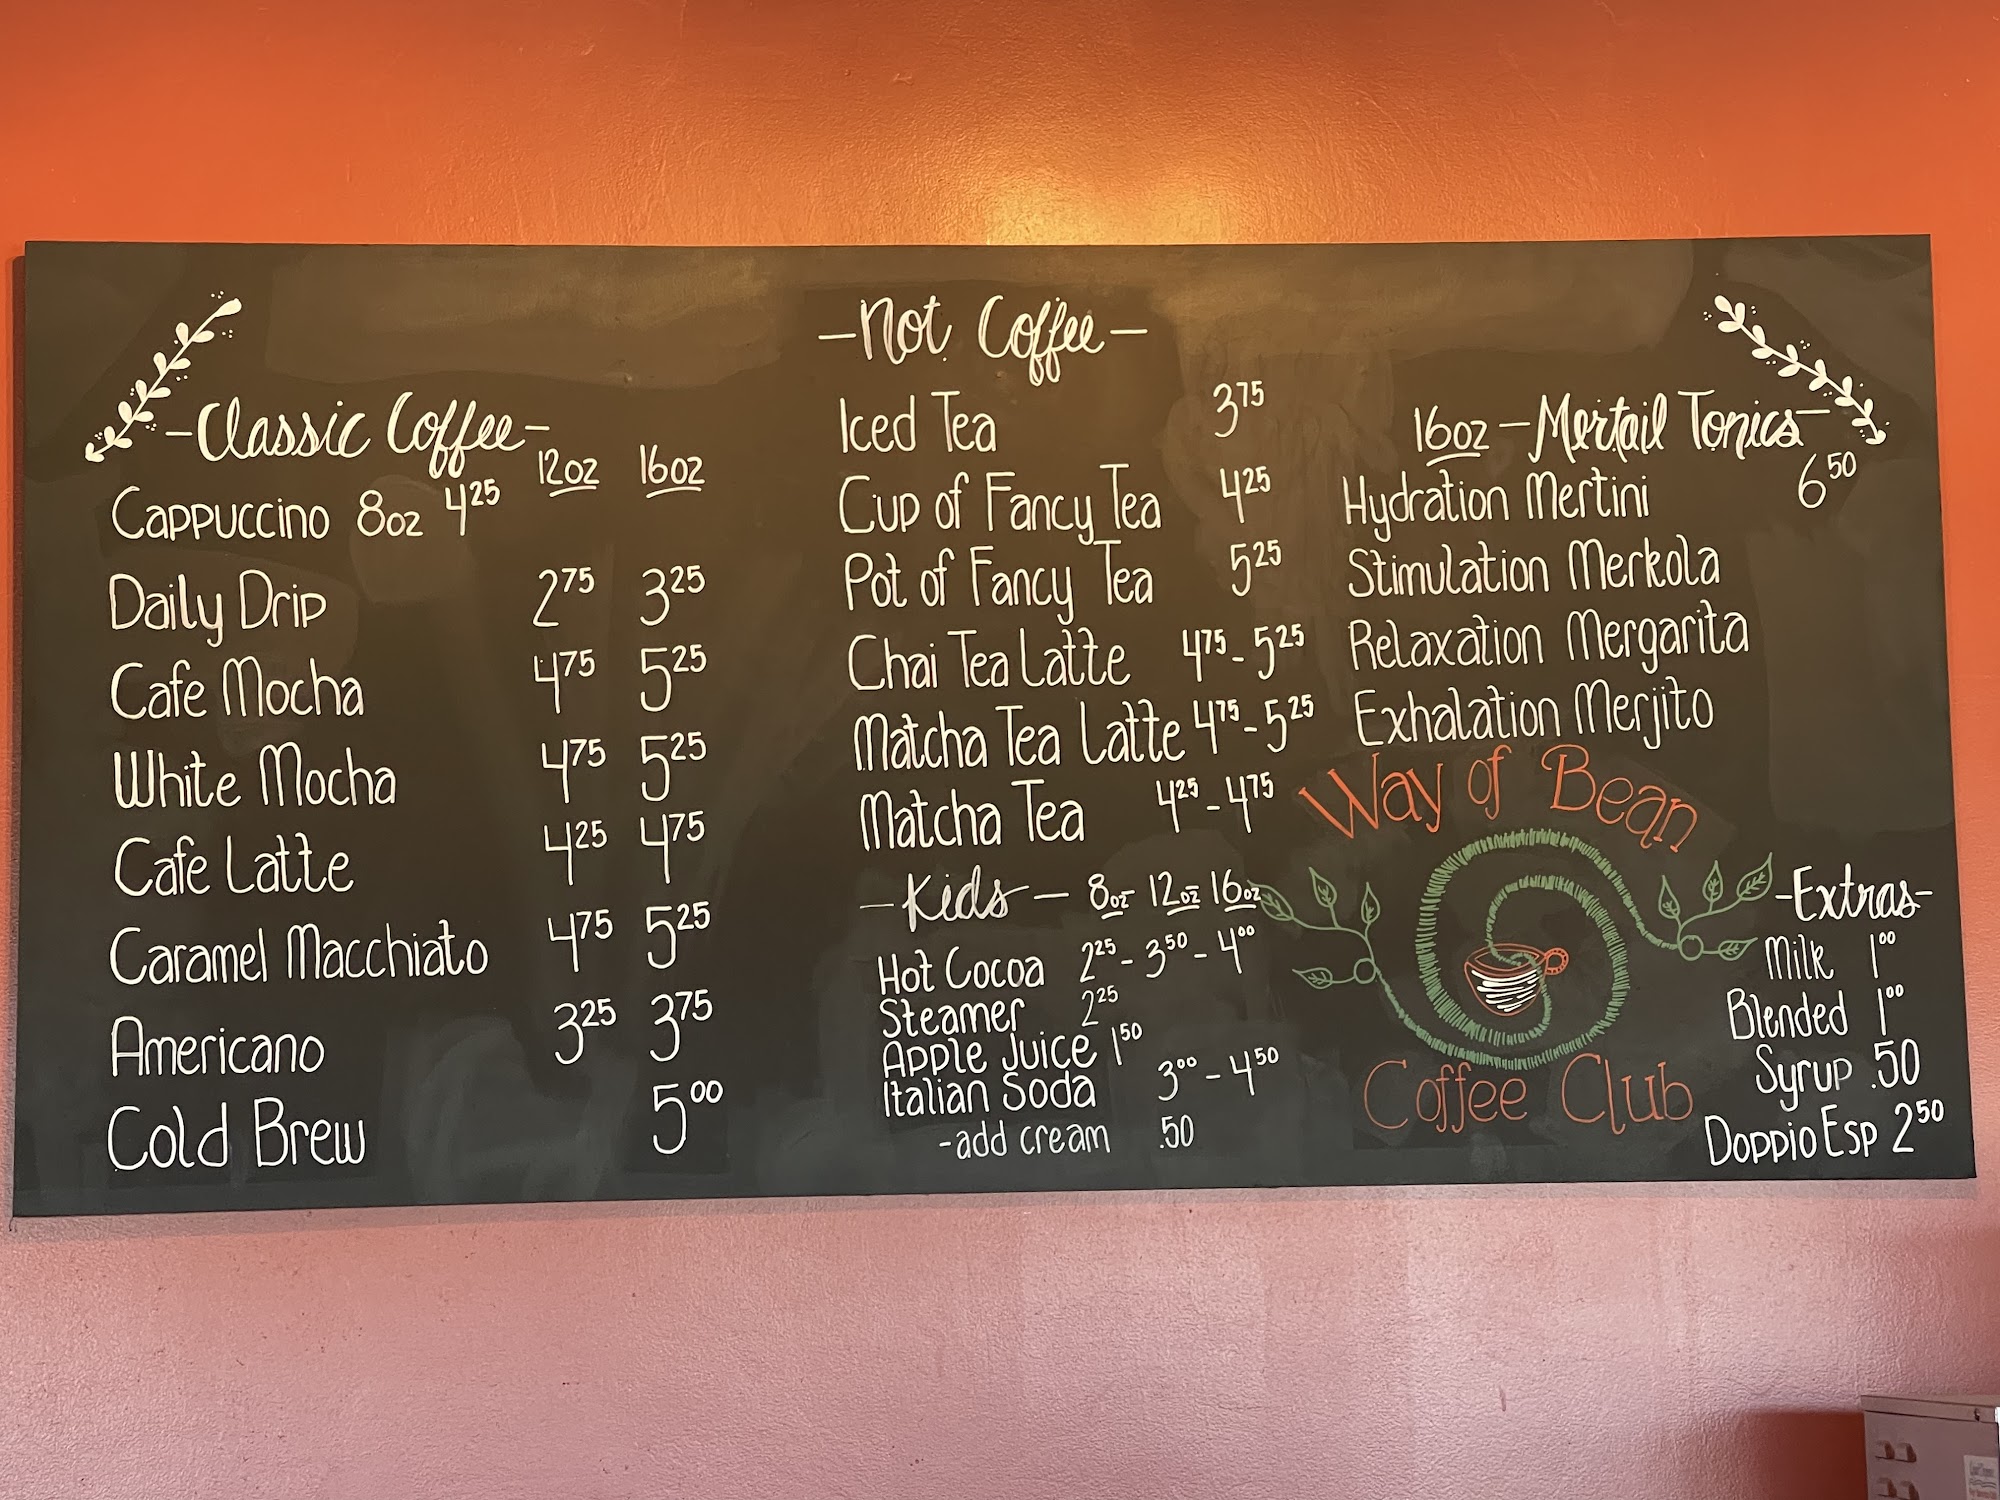 -Classic Coffee-
12oz 16oz
Cappuccino 8oz 4.25
Daily Drip 2.75 3.25
Cafe Mocha 4.75 5.25
White Mocha 4.75 5.25
Cafe Latte 4.25 4.75
Caramel Macchiato 4.75 5.25
Americano 3.25 3.75
Cold Brew 5.00
-Not Coffee-
Iced Tea 3.75
Cup of Fancy Tea 4.25
Pot of Fancy Tea 5.25
Chai Tea Latte 4.75-5.25
Matcha Tea Latte 4.75-5.25
Matcha Tea 4.25-4.75
-Kids- 8oz 12oz 16oz
Hot Cocoa 2.25-3.50-4.00
Steamer 2.25
Apple Juice 1.50
Italian Soda 3.00-4.50
-add cream .50
16oz -Mertail Tonics-
6.50
Hydration Mertini
Stimulation Merkola
Relaxation Mergarita
Exhalation Merjito
Way of Bean
Coffee Club
-Extras-
Milk 1.00
Blended 1.00
Syrup .50
Doppio Esp 2.50